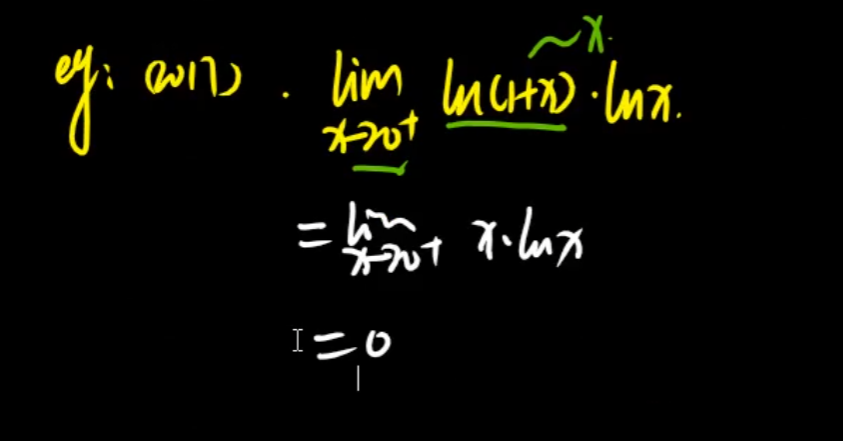 eg: (2017). lim x→0+ ln(1+x)·lnx. ~x.
= lim x→0+ x·lnx
= 0